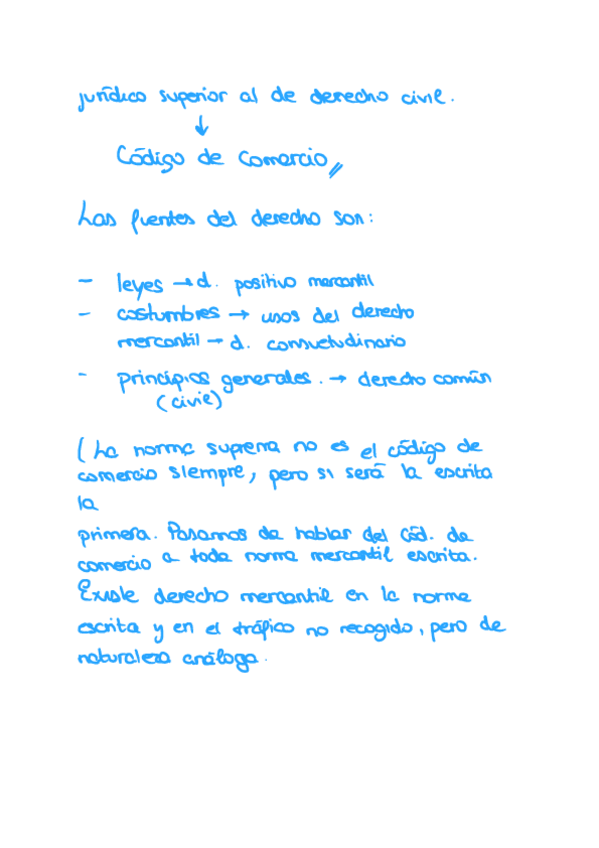 jurídico superior al de derecho civil.
↓
Código de Comercio,,
Las fuentes del derecho son:
- leyes → d. positivo mercantil
- costumbres → usos del derecho
mercantil → d. consuetudinario
- principios generales. → derecho común
(civil)
(La norma suprema no es el código de
comercio siempre, pero si será la escrita
la
primera. Pasamos de hablar del Cód. de
comercio a toda norma mercantil escrita.
Existe derecho mercantil en la norma
escrita y en el tráfico no recogido, pero de
naturaleza análoga.